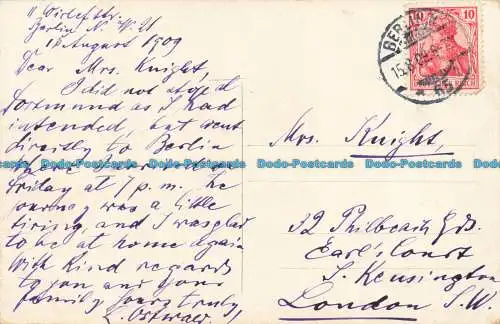 11 Wilefstr.
Berlin N. W. 21
15 August 1909
Dear Mrs. Knight,
I did not stop at
Dortmund as I had
intended, but went
directly to Berlin
where I arrived on
Friday at 7 p.m. The
journey was a little
tiring, and I was glad
to be at home again
With kind regards
to you and your
family yours truly
L. Ostwald.
BERLIN
15.8.09.
10
Mrs. Knight,
32 Philbeach Gds.
Earl's Court
S. Kensington
London S.W.
Dodo-Postcards Dodo-Postcards Dodo-Postcards Dodo-Postcards Dodo-Postcards